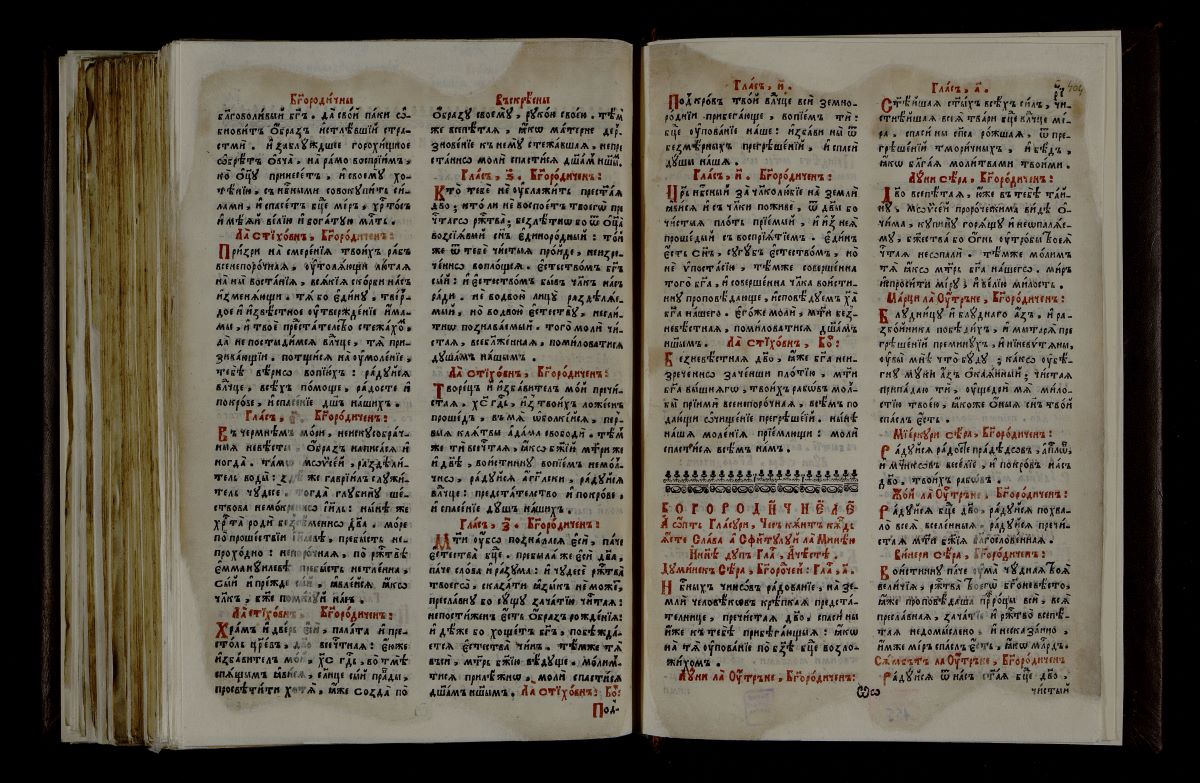 Бг҃ородичны
благоволивый бг҃ъ. да свой паки ѡ҆-
бновитъ ѡбразъ истлѣвшїй стра-
стми. и заблуждшее горохищное
ѡбрѣтъ ѻвча, на рамо воспрїимъ,
ко ѻц҃у принесетъ, и своему хо-
тѣнїю, съ нб҃ными совокупитъ си-
лами, и спасетъ бц҃е миръ, хрⷭ҇тосъ
и мѣѧй велїю и богатую млⷭ҇ть.
Ла стїховн, Бг҃ородиченъ:
Призри на смеренїѧ твоихъ рабъ
всенепорочнаѧ, оутолѧющи лютаѧ
на ны востанїѧ, всѧкїѧ скорби насъ
измѣнѧющи. тѧ бо едину, твер-
дое и извѣстное оутвержденїе има-
мы, и твое предстателство стежахомъ,
да не постыдимсѧ влⷣчце, тѧ при-
зывающїи. потщисѧ на оумоленїе,
тебѣ вѣрнѡ вопїихъ: радуйсѧ
влⷣчце, всѣхъ помоще, радосте и
покрове, и спасенїе дш҃ъ нашихъ.
Гласъ, Бг҃ородиченъ:
Въ чермнѣмъ мори, неискусобрач-
ныѧ невѣсты ѡбразъ написасѧ и
ногда. тамо мѡѷсей, раздѣли-
тель воды: здѣ же гаврїилъ служи-
тель чудесе. тогда глубину ше-
ствова немокреннѡ їиль: нынѣ же
хрⷭ҇та роди безсѣменнѡ дв҃а. море
по прошествїи їилевѣ, пребысть не-
проходно: непорочнаѧ, по ржⷭ҇твѣ
еммануилевѣ пребысть нетлѣнна,
сый и прежде сый, ꙗвлейсѧ ꙗкѡ
чл҃къ, бж҃е помилуй насъ.
Ла стїховн, Бг҃ородиченъ:
Храмъ и дверь еси, палата и пре-
столъ цр҃евъ, дв҃о всечтнаѧ: еюже
избавитель мой, хⷭ҇ гдⷭ҇ь, во тмѣ
спѧщымъ ꙗвисѧ, сл҃нце сый правды,
просвѣтити хотѧ, ꙗже созда по
Въскрⷭ҇ены
ѡбразу своему, рукою своею. тѣм
же всепѣтаѧ, ꙗкѡ матерне дер-
зновенїе къ нему стежавшаѧ, непре
станнѡ моли спастисѧ дш҃амъ нш҃ымъ.
Гласъ, з҃. Бг҃ородиченъ:
Кто тебе не оублажитъ престⷭ҇аѧ
дв҃о; и то ли не воспоетъ твоегѡ пре
чⷭ҇тагѡ ржⷭ҇тва; безлѣтнѡ бо ѿ ѻц҃а
возсїѧвый сн҃ъ единородный: той
же ѿ тебе чистыѧ пройде, неизре-
ченнѡ воплощсѧ. естествомъ бг҃ъ
сый: и естествомъ бывъ чл҃къ насъ
ради. не во двою лицу раздѣлѧе-
мый, но во двою естеству, несли-
тнѡ познаваемый. того моли чи-
стаѧ, всеблаженнаѧ, помиловатисѧ
душамъ нашымъ.
Ла стїховн, Бг҃ородиченъ:
Творецъ и избавитель мой пречи-
стаѧ, хⷭ҇ гдⷭ҇ь, из твоихъ ложеснъ
прошедъ, въ мѧ ѡболкійсѧ, пер-
выѧ клѧтвы адама свободи. тѣм
же ти всечтаѧ, ꙗкѡ бж҃їи мт҃ри же
и дв҃ѣ, воистинну вопїемъ немол-
чнѡ, радуйсѧ агг҃лски, радуйсѧ
влⷣчце: предстателство и покрове,
и спасенїе душъ нашихъ.
Гласъ, з҃. Бг҃ородиченъ:
Мт҃и оубѡ позналасѧ еси, паче
естества бц҃е. пребыла же еси дв҃а,
паче слова и разума: и чудесе ржⷭ҇тва
твоегѡ, сказати ꙗзыкъ не може,
преславну бо сущу зачатїю чтⷭ҇аѧ:
непостижен есть ѡбразъ рожденїѧ:
и дѣже бо хощетъ бг҃ъ, побѣжда-
етсѧ естества чинъ. тѣмже тѧ
вьси, мт҃рь бж҃їю вѣдуще, молим-
тисѧ прилѣжнѡ, моли спастисѧ
дш҃амъ ншымъ. Ла стїховн: Бо҃:
Под-
Гласъ, и҃.
Под кровъ твой влⷣчце вси земно-
роднїи прибегающе, вопїемъ ти:
бц҃е оупованїе наше: избави ны ѿ
безмѣрныхъ прегрѣшенїй, и спаси
душы нашѧ.
Гласъ, и҃. Бг҃ородиченъ:
Цр҃ь нбⷭ҇ный за чл҃колюбїе на земли
ꙗвисѧ и съ чл҃ки поживе, ѿ дв҃ы бо
чистыѧ плоть прїемый, и из неѧ
прошедый съ воспрїѧтїемъ. единъ
есть сн҃ъ, сугубъ естествомъ, но
не ѵпостасїю, тѣмже совершенна
того бг҃а, и совершенна чл҃ка воисти-
нну проповѣдающе, исповѣдуемъ хⷭ҇а
бг҃а нашего. егоже моли, мт҃и без-
невѣстнаѧ, помиловатисѧ дш҃амъ
ншымъ. Ла стїховн, Бо҃:
Безневѣстнаѧ дв҃о, ꙗже бг҃а неи-
зреченнѡ заченши плотїю, мт҃и
бг҃а вышнѧгѡ, твоихъ рабѡвъ мол-
бы прїими всенепорочнаѧ, всѣмъ по
дающи ѡчищенїе прегрѣшенїй. нынѣ
нашѧ моленїѧ прїемлющи: моли
спастисѧ всѣмъ намъ.
БОГОРОДИЧНЕЛЕ
А ѡпть гласури, Чесъ кѫнтъ кѫдь
ꙗсте Слава а Сфитулуй ла Минѣю
Нинѣ дупъ Глаⷭ, Ачѣсте.
Думинекъ Сѣра, Бг҃ороⷣчей: Глаⷭ, а҃.
Нбⷭ҇ныхъ чинѡвъ радованїе, на зе-
мли человѣкѡвъ крѣпкаѧ предста-
телнице, пречистаѧ дв҃о, спаси ны
иже къ тебѣ прибѣгающыѧ: ꙗкѡ
на тѧ оупованїе по бз҃ѣ бц҃е возло-
жихомъ.
Луни ла Оутрьне, Бг҃ородиченъ:
Гласъ, а҃.
404
Стⷭ҇ѣйшаѧ ст҃ыхъ всѣхъ силъ, чи-
стнѣйшаѧ всеѧ твари бц҃е влⷣчце ми-
ра, спаси ны сп҃са рождшаѧ, ѿ пре-
грѣшенїй тморичныхъ, и бѣдъ,
ꙗкѡ благаѧ молитвами твоими.
Луни сѣра, Бг҃ородиченъ:
Дв҃о всепѣтаѧ, ꙗже въ тебѣ тай-
ну, мѡѷсей пророческима видѣ ѻ-
чима, купину горѧщу и неѡпалѧе-
му, бжⷭ҇тва бо ѻгнь оутробы твоеѧ
чⷭ҇таѧ неѡпали. тѣмже молимъ
тѧ ꙗкѡ мт҃рь бг҃а нашегѡ. миръ
испросити миру, и велїю милость.
Марци ла Оутрьне, Бг҃ородиченъ:
Блудницу и блуднаго азъ, и ра-
збойника побѣдихъ, и мытарѧ пре
грѣшенїй преминухъ, и ниневитѧны,
оувы мнѣ что буду; какѡ оубѣ-
гну муки азъ ѻкаѧнный; чистаѧ
припадаю ти, оущедри мѧ мило-
стїю твоею, ꙗкоже ѻныѧ сн҃ъ твой
спаслъ есть.
Мїеркури сѣра, Бг҃ородиченъ:
Радуйсѧ радосте прадѣдѡвъ, апⷭ҇лѡв,
и мⷱ҇никѡвъ веселїе, и покровъ насъ
дв҃о, твоихъ рабѡвъ.
Жой ла Оутрьне, Бг҃ородиченъ:
Радуйсѧ бц҃е дв҃о, радуйсѧ похва-
ло всеѧ вселенныѧ, радуйсѧ пречи-
стаѧ мт҃и бж҃їѧ благословеннаѧ.
Винери сѣра, Бг҃ородиченъ:
Воистинну паче ума чуднаѧ твоѧ
величїѧ, ржⷭ҇тва твоегѡ бг҃оневѣсто,
ꙗже проповѣдаша пр҃роцы вси, всѧ
преславнаѧ, зачатїе и ржⷭ҇тво всепѣ-
таѧ недомысленно, и несказанно,
имже миръ спаслъ есть, ꙗкѡ млⷭ҇рдъ.
Сѫмбътъ ла Оутрьне, Бг҃ородиченъ
Радуйсѧ ѿ насъ ст҃аѧ бц҃е дв҃о,
чистый